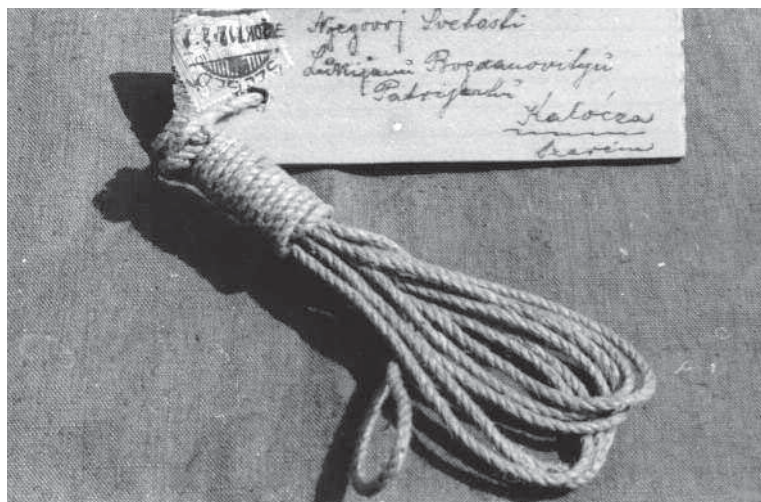 Njegovoj Svetosti
Lukijanu Bogdanovityu
Patrijarhu
Kalócza